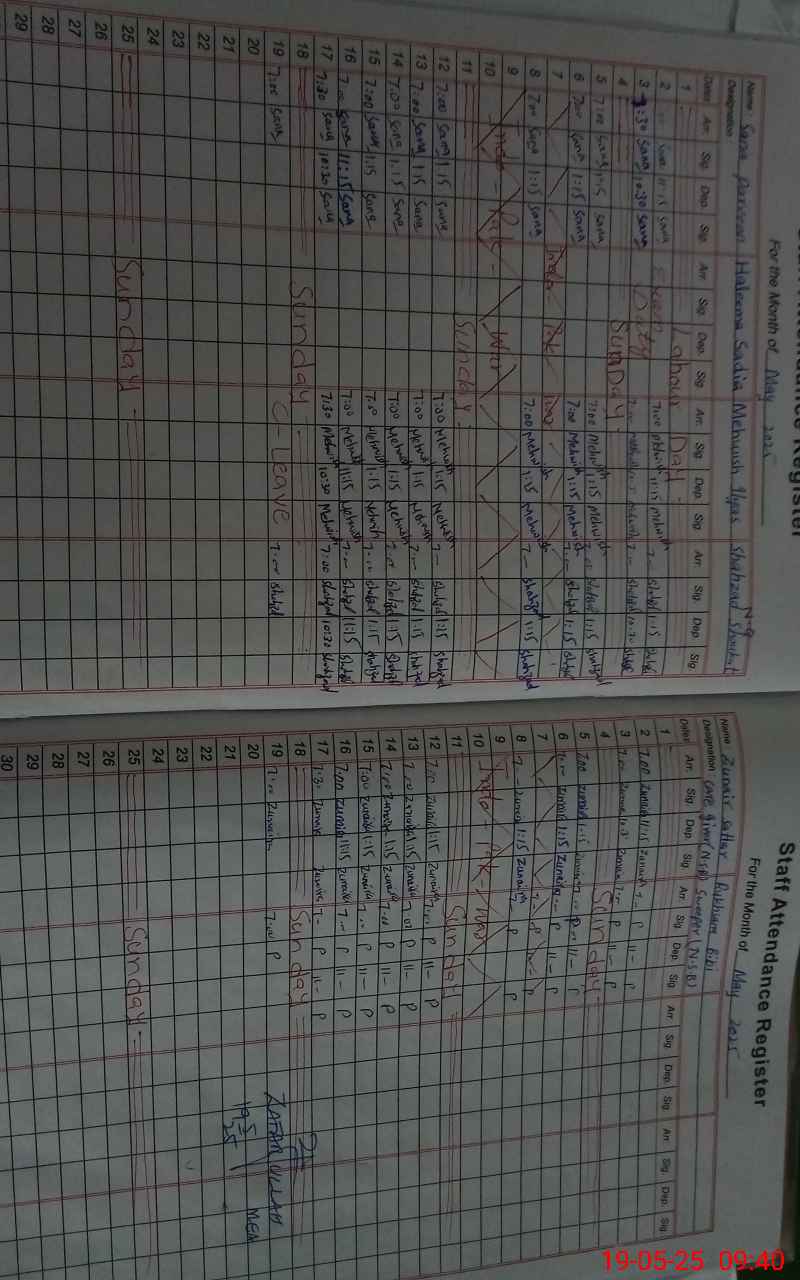 Staff Attendance Register
For the Month of May 2025
Name: Sana Parveen Haleema Sadia Mehwish Ilyas Shahzad Shoukat
Designation N-Q
Dates Arr. Sig. Dep. Sig. Arr. Sig. Dep. Sig. Arr. Sig. Dep. Sig. Arr. Sig. Dep. Sig.
1 Labour Day
2 Sana 11:15 Sana Exam 7:00 Mehwish 11:15 Mehwish 7:- Shahzad 1:15
3 7:30 Sana 10:30 Sana Duty 7:00 7:- Shahzad 10:30
4 SunDay
5 7:00 Sana 1:15 Sana 7:00 Mehwish 1:15 Mehwish 7:00 Shahzad 1:15 Shahzad
6 7:00 Sana 1:15 Sana 7:00 Mehwish 1:15 Mehwish 7:- Shahzad 1:15
7 Indo - Pak War
8 7:00 Sana 1:15 Sana 7:00 Mehwish 1:15 Mehwish 7- Shahzad 1:15 Shahzad
9
10 Indo - Pak - War
11 Sunday
12 7:00 Sana 1:15 Sana 7:00 Mehwish 1:15 Mehwish 7- Shahzad 1:15 Shahzad
13 7:00 Sana 1:15 Sana 7:00 Mehwish 1:15 Mehwish 7:- Shahzad 1:15 Shahzad
14 7:00 Sana 1:15 Sana 7:00 Mehwish 1:15 Mehwish 7:00 Shahzad 1:15 Shahzad
15 7:00 Sana 1:15 Sana 7:0 Mehwish 1:15 Mehwish 7:00 Shahzad 1:15 Shahzad
16 7:00 Sana 11:15 Sana 7:00 Mehwish 11:15 Mehwish 7:- Shahzad 11:15 Shahzad
17 7:30 Sana 10:30 Sana 7:30 Mehwish 10:30 Mehwish 7:00 Shahzad 10:30 Shahzad
18 Sunday
19 7:00 Sana C-Leave 7:00 Shahzad
20
21
22
23
24
25 Sunday
26
27
28
29
Staff Attendance Register
For the Month of May 2025
Name Zunair Sattar Rukhsana Bibi
Designation Care giver (N.S.B) Sweeper (N.S.B)
Dates Arr. Sig. Dep. Sig. Arr. Sig. Dep. Sig. Arr. Sig. Dep. Sig. Arr. Sig. Dep. Sig.
1
2 7:00 Zunaira 11:15 Zunaira 7- P 11- P
3 7:00 Zunaira 10:3 Zunaira 7:- P 11- P
4 Sunday
5 7:00 Zunaira 1:15 Zunaira 7- P 11- P
6 7:- Zunaira 1:15 Zunaira 7- P 11- P
7
8 7- Zunaira 1:15 Zunaira 7- P P
9
10 Indo - Pak - War
11 Sunday
12 7:00 Zunaira 1:15 Zunaira 7:00 P 11- P
13 7:00 Zunaira 1:15 Zunaira 7:00 P 11- P
14 7:00 Zunaira 1:15 Zunaira 7:00 P 11- P
15 7:00 Zunaira 1:15 Zunaira 7:00 P 11- P
16 7:00 Zunaira 11:15 Zunaira 7- P 11- P
17 7:30 Zunaira Zunaira 7- P 11- P
18 Sunday
19 7:00 Zunaira 7:00 P
20
21
22
23
24
25 Sunday
26
27
28
29
30
ZAFAR ULLAH
MEA
19/5/25
19-05-25 09:40